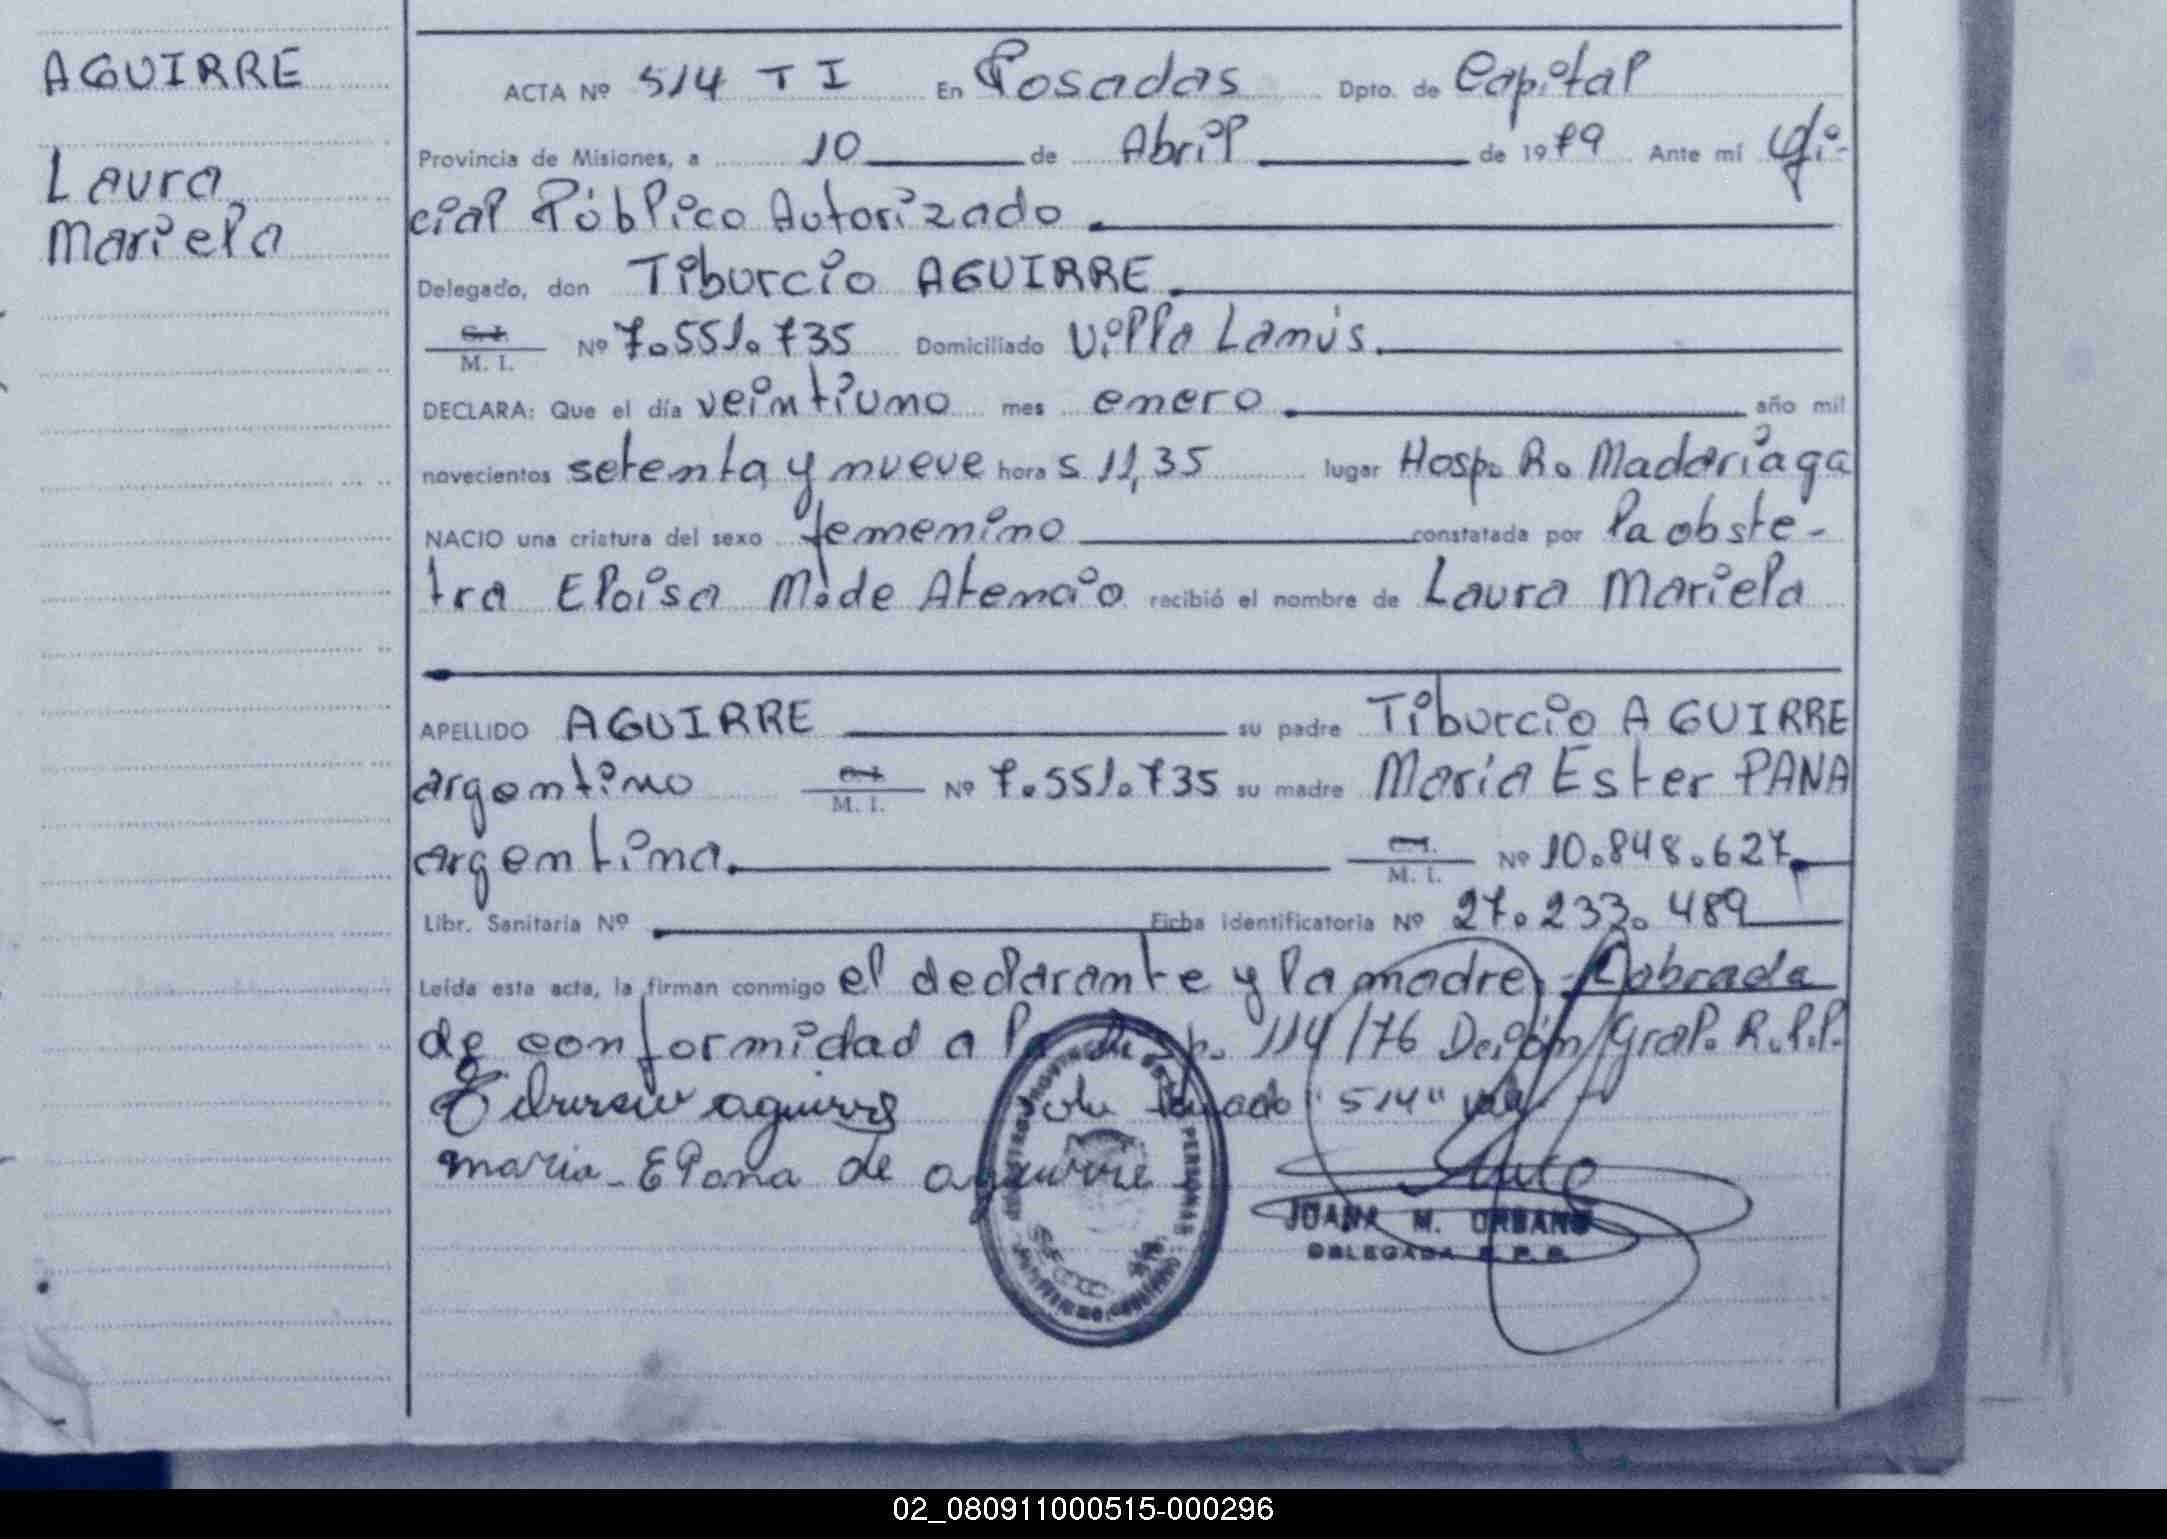 AGUIRRE
Laura
Mariela
ACTA Nº 514 T I En Posadas Dpto. de Capital
Provincia de Misiones, a 10 de Abril de 1979 Ante mí Ofi-
cial Público Autorizado
Delegado, don Tiburcio AGUIRRE
C.I. M. I. Nº 7.551.735 Domiciliado Villa Lanús.
DECLARA: Que el día veintiuno mes enero año mil
novecientos setenta y nueve hora s 11,35 lugar Hosp. R. Madariaga
NACIO una criatura del sexo femenino constatada por la obste-
tra Eloisa M. de Atencio recibió el nombre de Laura Mariela
APELLIDO AGUIRRE su padre Tiburcio AGUIRRE
argentino M. I. Nº 7.551.735 su madre María Ester PANA
argentina. M. I. Nº 10.848.627
Libr. Sanitaria Nº Ficha identificatoria Nº 27.233.489
Leída esta acta, la firman conmigo el declarante y la madre. Labrada
de conformidad a la Disp. 114/76 Deión Gral. R.P.P.
Tiburcio aguirre "514" vale
maria E Pana de aguirre
JUANA M. URBANO
DELEGADA R. P. P.
02_080911000515-000296